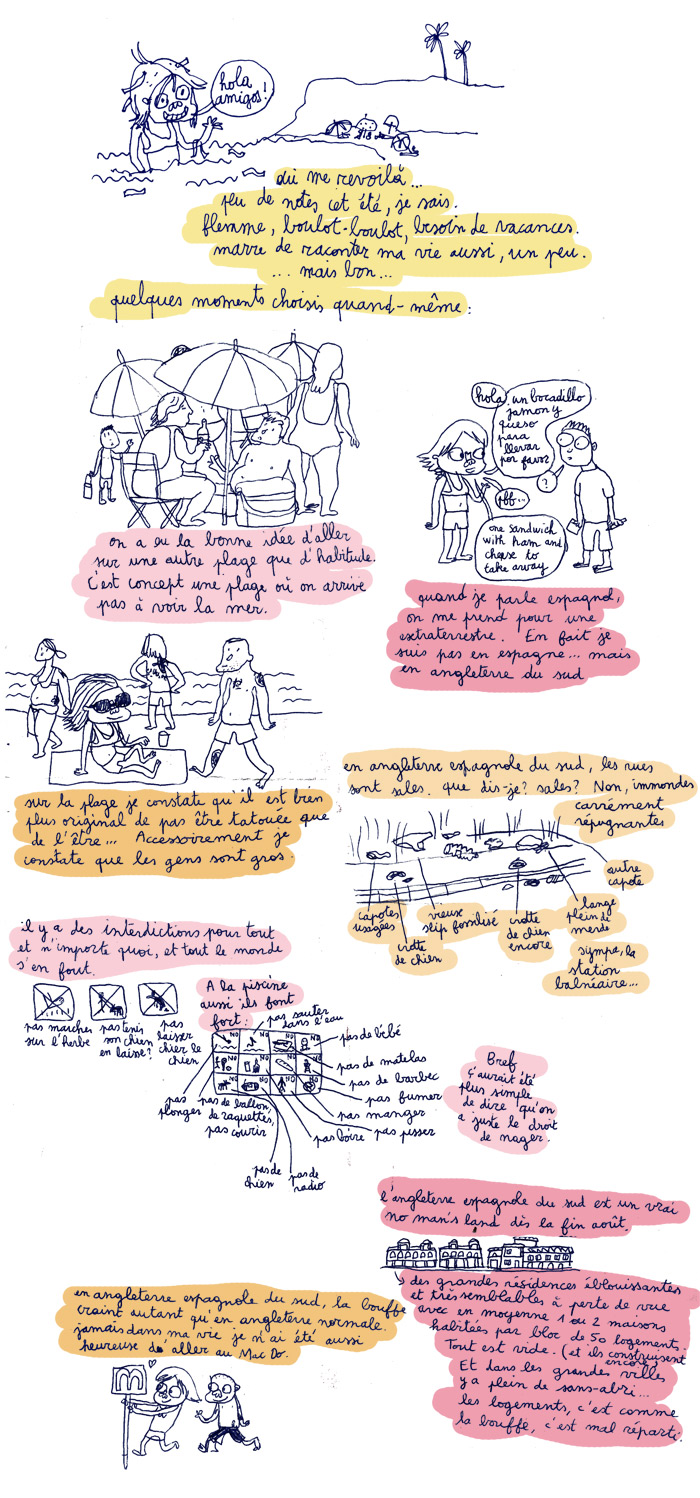 hola
amigos!
oui me revoilà...
peu de notes cet été, je sais.
flemme, boulot-boulot, besoin de vacances.
marre de raconter ma vie aussi, un peu.
... mais bon...
quelques moments choisis quand-même:
hola un bocadillo
jamon y
queso
para
llevar
por favor
?
pff...
one sandwich
with ham and
cheese to
take away
on a eu la bonne idée d'aller
sur une autre plage que d'habitude.
C'est concept une plage où on arrive
pas à voir la mer.
quand je parle espagnol,
on me prend pour une
extraterrestre. En fait je
suis pas en espagne... mais
en angleterre du sud
sur la plage je constate qu'il est bien
plus original de pas être tatouée que
de l'être... Accessoirement je
constate que les gens sont gros.
en angleterre espagnole du sud, les rues
sont sales. que dis-je? sales? Non, immondes
carrément
répugnantes
autre
capote
capotes
usagées
crotte
de chien
vieux
slip fossilisé
crotte
de chien
encore
lange
plein de
merde
sympa, la
station
balnéaire...
il y a des interdictions pour tout
et n'importe quoi, et tout le monde
s'en fout.
pas marcher
sur l'herbe
pas tenir
son chien
en laisse?
pas
laisser
chier le
chien
A la piscine
aussi ils font
fort:
NO NO NO NO
NO NO NO NO
NO NO NO NO
pas sauter
dans l'eau
pas de bébé
pas de matelas
pas de barbec
pas fumer
pas manger
pas pisser
pas boire
pas de
radio
pas de
chien
pas de ballon,
de raquettes,
pas courir
pas
plonger
Bref
ç'aurait été
plus simple
de dire qu'on
a juste le droit
de nager.
l'angleterre espagnole du sud est un vrai
no man's land dès la fin août.
des grandes résidences éblouissantes
et très semblables à perte de vue
avec en moyenne 1 ou 2 maisons
habitées par bloc de 50 logements.
Tout est vide. (et ils construisent
encore)
Et dans les grandes villes
y a plein de sans-abri...
les logements, c'est comme
la bouffe, c'est mal réparti.
en angleterre espagnole du sud, la bouffe
craint autant qu'en angleterre normale.
jamais dans ma vie je n'ai été aussi
heureuse d'aller au Mac Do.
m